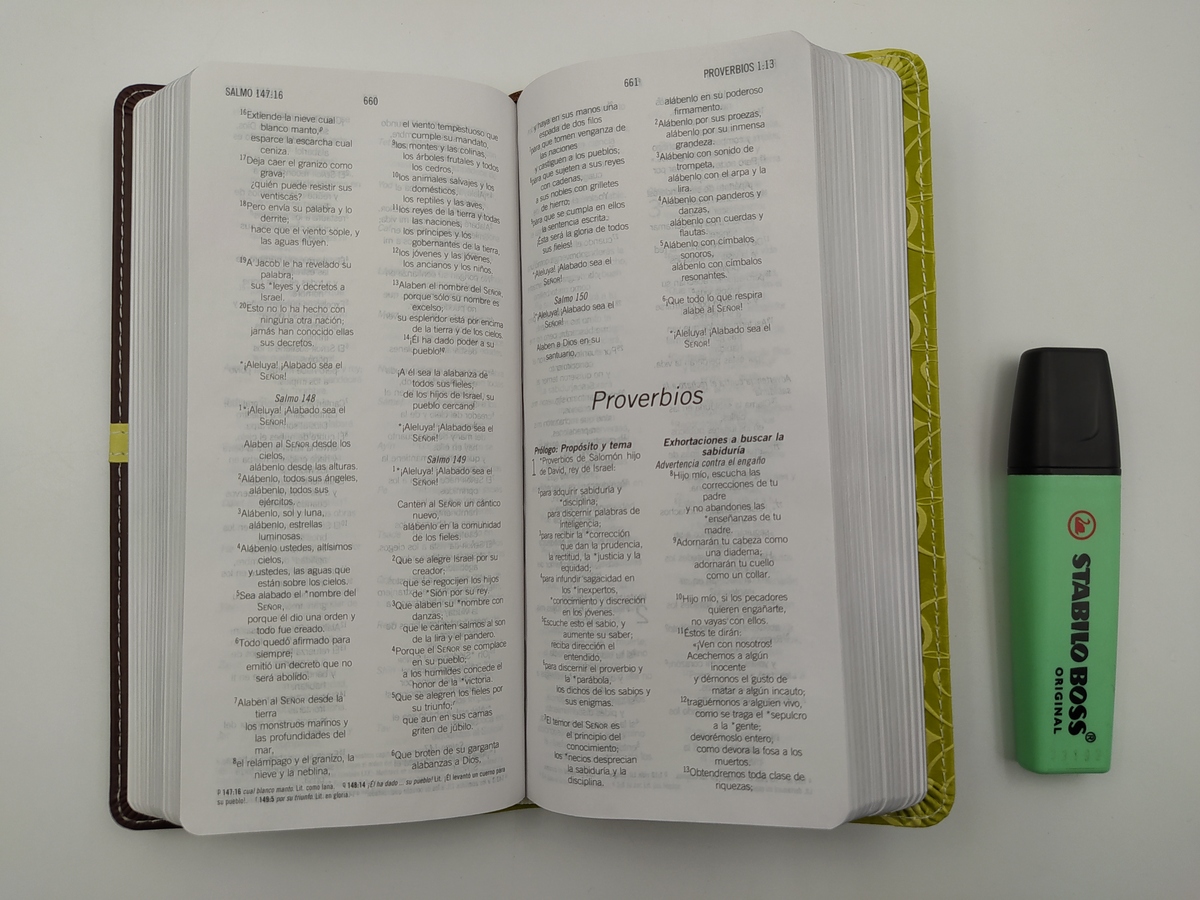 SALMO 147:16
660
16Extiende la nieve cual
blanco manto,g
esparce la escarcha cual
ceniza.
17Deja caer el granizo como
grava;
¿quién puede resistir sus
ventiscas?
18Pero envía su palabra y lo
derrite;
hace que el viento sople, y
las aguas fluyen.
19A Jacob le ha revelado su
palabra;
sus *leyes y decretos a
Israel.
20Esto no lo ha hecho con
ninguna otra nación;
jamás han conocido ellas
sus decretos.
*¡Aleluya! ¡Alabado sea el
SEÑOR!
Salmo 148
1*¡Aleluya! ¡Alabado sea el
SEÑOR!
Alaben al SEÑOR desde los
cielos,
alábenlo desde las alturas.
2Alábenlo, todos sus ángeles,
alábenlo, todos sus
ejércitos.
3Alábenlo, sol y luna,
alábenlo, estrellas
luminosas.
4Alábenlo ustedes, altísimos
cielos,
y ustedes, las aguas que
están sobre los cielos.
5Sea alabado el *nombre del
SEÑOR,
porque él dio una orden y
todo fue creado.
6Todo quedó afirmado para
siempre;
emitió un decreto que no
será abolido.
7Alaben al SEÑOR desde la
tierra
los monstruos marinos y
las profundidades del
mar,
8el relámpago y el granizo, la
nieve y la neblina,
el viento tempestuoso que
cumple su mandato,
9los montes y las colinas,
los árboles frutales y todos
los cedros,
10los animales salvajes y los
domésticos,
los reptiles y las aves,
11los reyes de la tierra y todas
las naciones,
los príncipes y los
gobernantes de la tierra,
12los jóvenes y las jóvenes,
los ancianos y los niños.
13Alaben el nombre del SEÑOR
porque sólo su nombre es
excelso;
su esplendor está por encima
de la tierra y de los cielos.
14¡Él ha dado poder a su
pueblo!q
¡A él sea la alabanza de
todos sus fieles,
de los hijos de Israel, su
pueblo cercano!
*¡Aleluya! ¡Alabado sea el
SEÑOR!
Salmo 149
1*¡Aleluya! ¡Alabado sea el
SEÑOR!
Canten al SEÑOR un cántico
nuevo,
alábenlo en la comunidad
de los fieles.
2Que se alegre Israel por su
creador;
que se regocijen los hijos
de *Sión por su rey.
3Que alaben su *nombre con
danzas;
que le canten salmos al son
de la lira y el pandero.
4Porque el SEÑOR se complace
en su pueblo;
a los humildes concede el
honor de la *victoria.
5Que se alegren los fieles por
su triunfo;r
que aun en sus camas
griten de júbilo.
6Que broten de su garganta
alabanzas a Dios,
147:16 cual blanco manto. Lit. como lana. q 148:14 ¡Él ha dado ... su pueblo! Lit. ¡Él levantó un cuerno para
su pueblo!. r 149:5 por su triunfo. Lit. en gloria.
661
PROVERBIOS 1:13
y haya en sus manos una
espada de dos filos
para que tomen venganza de
las naciones
y castiguen a los pueblos;
para que sujeten a sus reyes
con cadenas,
a sus nobles con grilletes
de hierro;
para que se cumpla en ellos
la sentencia escrita.
¡Ésta será la gloria de todos
sus fieles!
*¡Aleluya! ¡Alabado sea el
SEÑOR!
Salmo 150
*¡Aleluya! ¡Alabado sea el
SEÑOR!
Alaben a Dios en su
santuario,
alábenlo en su poderoso
firmamento.
2Alábenlo por sus proezas,
alábenlo por su inmensa
grandeza.
3Alábenlo con sonido de
trompeta,
alábenlo con el arpa y la
lira.
4Alábenlo con panderos y
danzas,
alábenlo con cuerdas y
flautas.
5Alábenlo con címbalos
sonoros,
alábenlo con címbalos
resonantes.
6¡Que todo lo que respira
alabe al SEÑOR!
*¡Aleluya! ¡Alabado sea el
SEÑOR!
Proverbios
Prólogo: Propósito y tema
1 *Proverbios de Salomón hijo
de David, rey de Israel:
2para adquirir sabiduría y
*disciplina;
para discernir palabras de
inteligencia;
3para recibir la *corrección
que dan la prudencia,
la rectitud, la *justicia y la
equidad;
4para infundir sagacidad en
los *inexpertos,
*conocimiento y discreción
en los jóvenes.
5Escuche esto el sabio, y
aumente su saber;
reciba dirección el
entendido,
6para discernir el proverbio y
la *parábola,
los dichos de los sabios y
sus enigmas.
7El temor del SEÑOR es
el principio del
conocimiento;
los *necios desprecian
la sabiduría y la
disciplina.
Exhortaciones a buscar la
sabiduría
Advertencia contra el engaño
8Hijo mío, escucha las
correcciones de tu
padre
y no abandones las
*enseñanzas de tu
madre.
9Adornarán tu cabeza como
una diadema;
adornarán tu cuello
como un collar.
10Hijo mío, si los pecadores
quieren engañarte,
no vayas con ellos.
11Éstos te dirán:
«¡Ven con nosotros!
Acechemos a algún
inocente
y démonos el gusto de
matar a algún incauto;
12traguémonos a alguien vivo,
como se traga el *sepulcro
a la *gente;
devorémoslo entero,
como devora la fosa a los
muertos.
13Obtendremos toda clase de
riquezas;
STABILO BOSS®
ORIGINAL